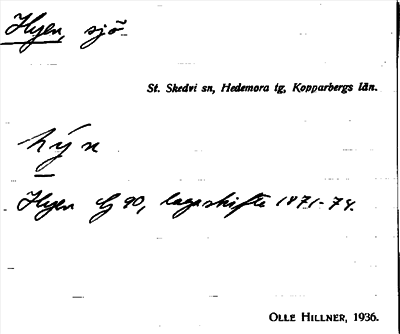 Hyen, sjö
St. Skedvi sn, Hedemora tg, Kopparbergs län.
hýn
Hyen G 90, lagaskifte 1871-74.
OLLE HILLNER, 1936.